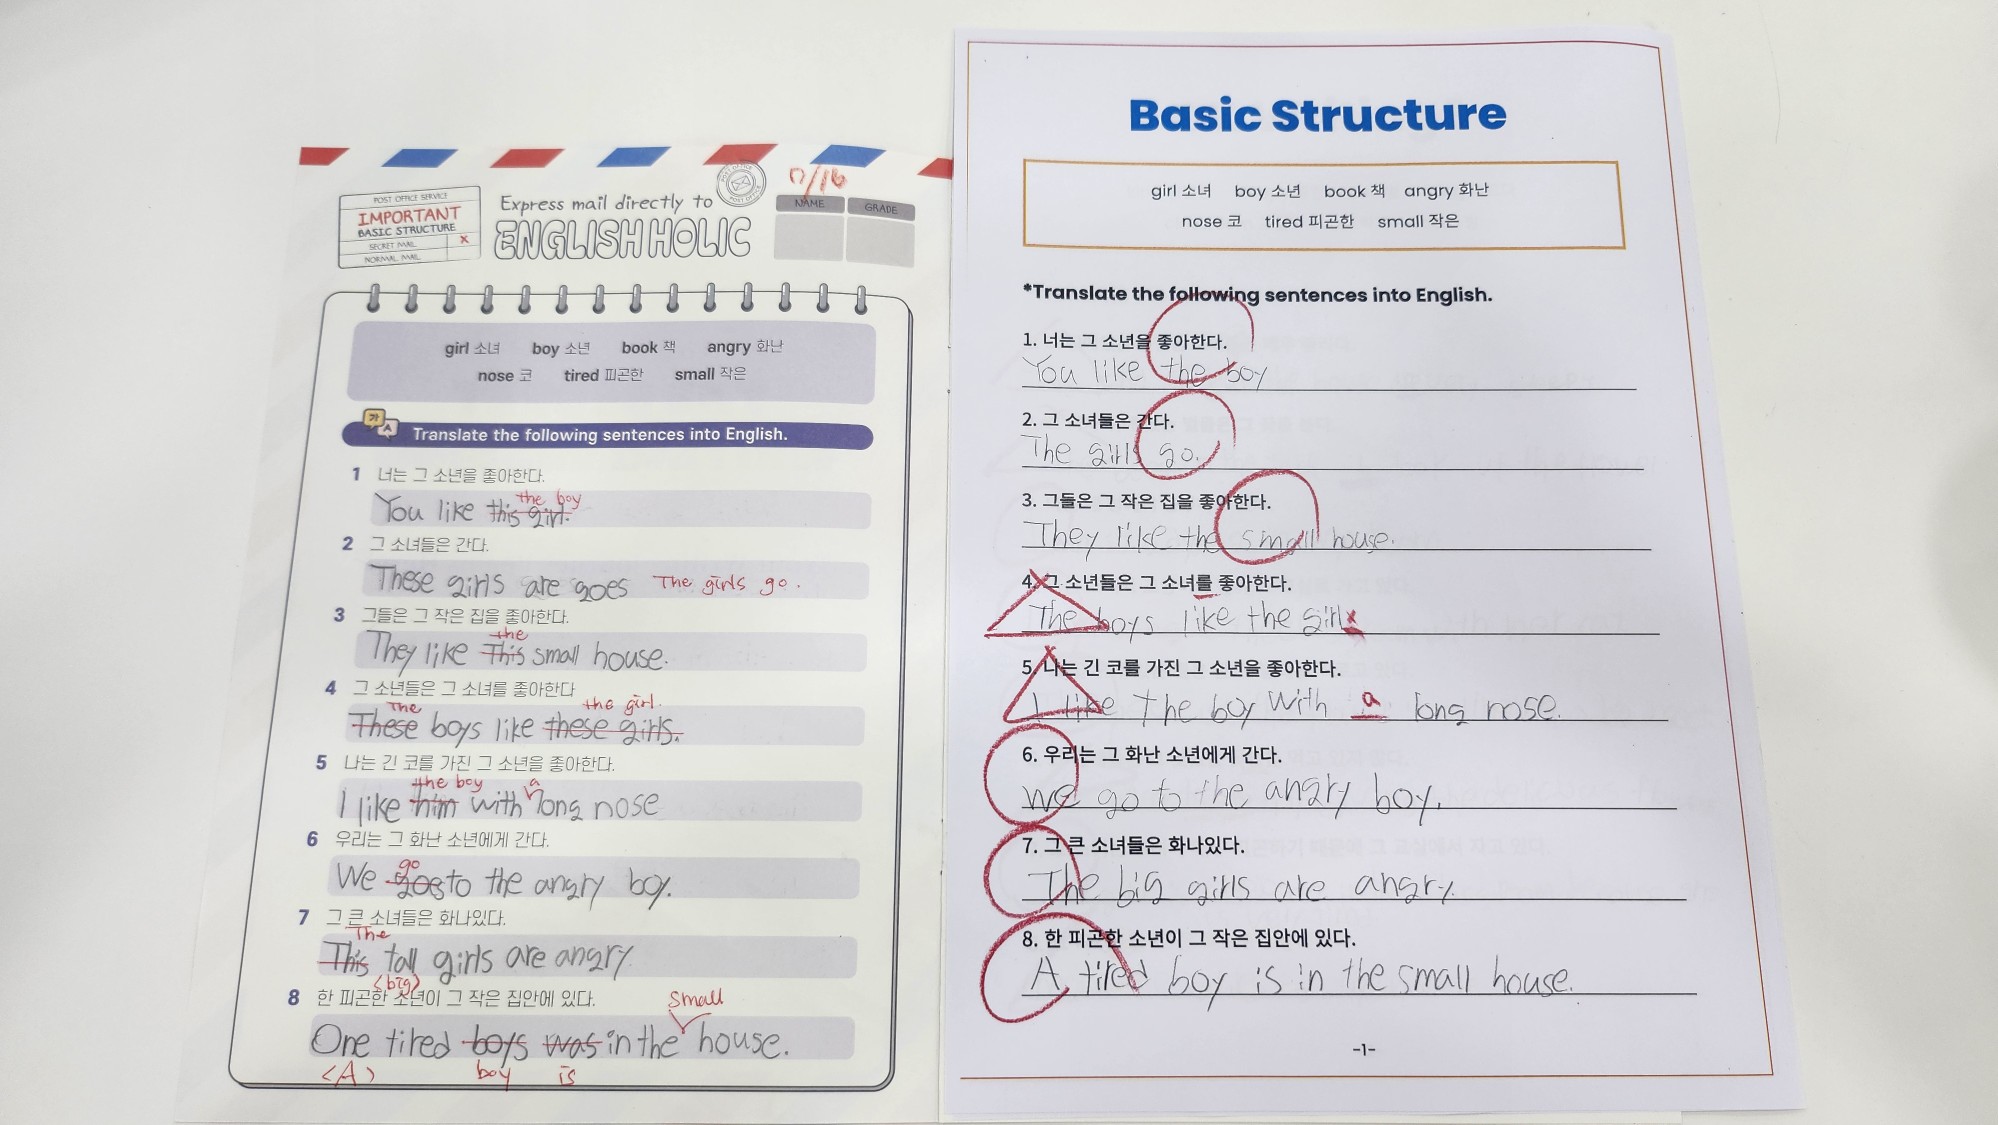 POST OFFICE SERVICE
IMPORTANT
BASIC STRUCTURE
SECRET MAIL X
NORMAL MAIL
Express mail directly to
ENGLISH HOLIC
POST OFFICE
POST OFFICE
17/16
NAME GRADE
girl 소녀 boy 소년 book 책 angry 화난
nose 코 tired 피곤한 small 작은
가 A
Translate the following sentences into English.
1 너는 그 소년을 좋아한다.
the boy
You like this girl.
2 그 소녀들은 간다.
These girls are goes The girls go.
3 그들은 그 작은 집을 좋아한다.
the
They like This small house.
4 그 소년들은 그 소녀를 좋아한다
The the girl.
These boys like these girls.
5 나는 긴 코를 가진 그 소년을 좋아한다.
the boy a
I like him with long nose
6 우리는 그 화난 소년에게 간다.
go
We goes to the angry boy.
7 그 큰 소녀들은 화나있다.
The
This tall girls are angry.
(big)
8 한 피곤한 소년이 그 작은 집안에 있다.
small
One tired boys was in the house.
<A> boy is
Basic Structure
girl 소녀 boy 소년 book 책 angry 화난
nose 코 tired 피곤한 small 작은
*Translate the following sentences into English.
1. 너는 그 소년을 좋아한다.
You like the boy
2. 그 소녀들은 간다.
The girls go.
3. 그들은 그 작은 집을 좋아한다.
They like the small house.
4. 그 소년들은 그 소녀를 좋아한다.
The boys like the girls
5. 나는 긴 코를 가진 그 소년을 좋아한다.
I like The boy with a long nose.
6. 우리는 그 화난 소년에게 간다.
We go to the angry boy.
7. 그 큰 소녀들은 화나있다.
The big girls are angry.
8. 한 피곤한 소년이 그 작은 집안에 있다.
A tired boy is in the small house.
-1-